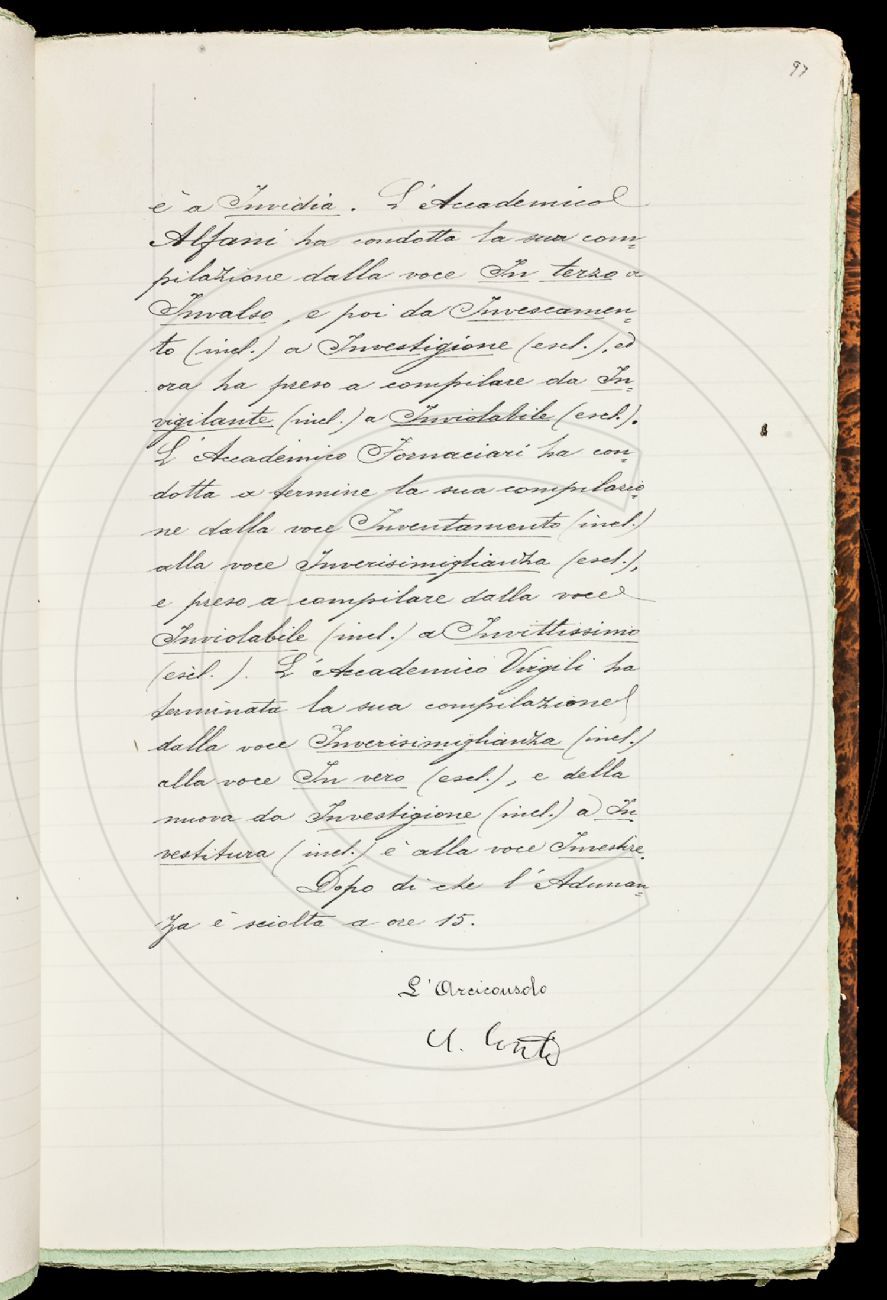 97
è a Invidia. L'Accademico
Alfani ha condotta la sua com=
pilazione dalla voce In terzo a
Invalso, e poi da Invescamen=
to (incl.) a Investigione (escl.), ed
ora ha preso a compilare da In=
vigilante (incl.) a Inviolabile (escl.).
L'Accademico Fornaciari ha con=
dotta a termine la sua compilazio=
ne dalla voce Inventamento (incl.)
alla voce Inverisimiglianza (escl.),
e preso a compilare dalla voce
Inviolabile (incl.) a Invittissimo
(escl.). L'Accademico Virgili ha
terminata la sua compilazione
dalla voce Inverisimiglianza (incl.)
alla voce In vero (escl.), e della
nuova da Investigione (incl.) a In=
vestitura (incl.) è alla voce Investire.
Dopo di che l'Adunan=
za è sciolta a ore 15.
L'Arciconsolo
A. Conti